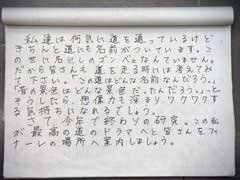 私達は何気に道を通っているけど
きちんと道にも名前がついています。こ
の世に名無しのゴンベェなんていません。
だから皆さんも道を走る時には考えてみ
て下さい。「この道はどんな名前なんだろう。」
「昔の景色はどんな景色だったんだろう。」と。
そうしたら、想像力も深まり、ワクワクす
る気持ちになれるでしょう。
さて今年で終わりの研究。この私
が最高の道のドラマへと皆さんをフィ
ナーレの場所へ案内しましょう。